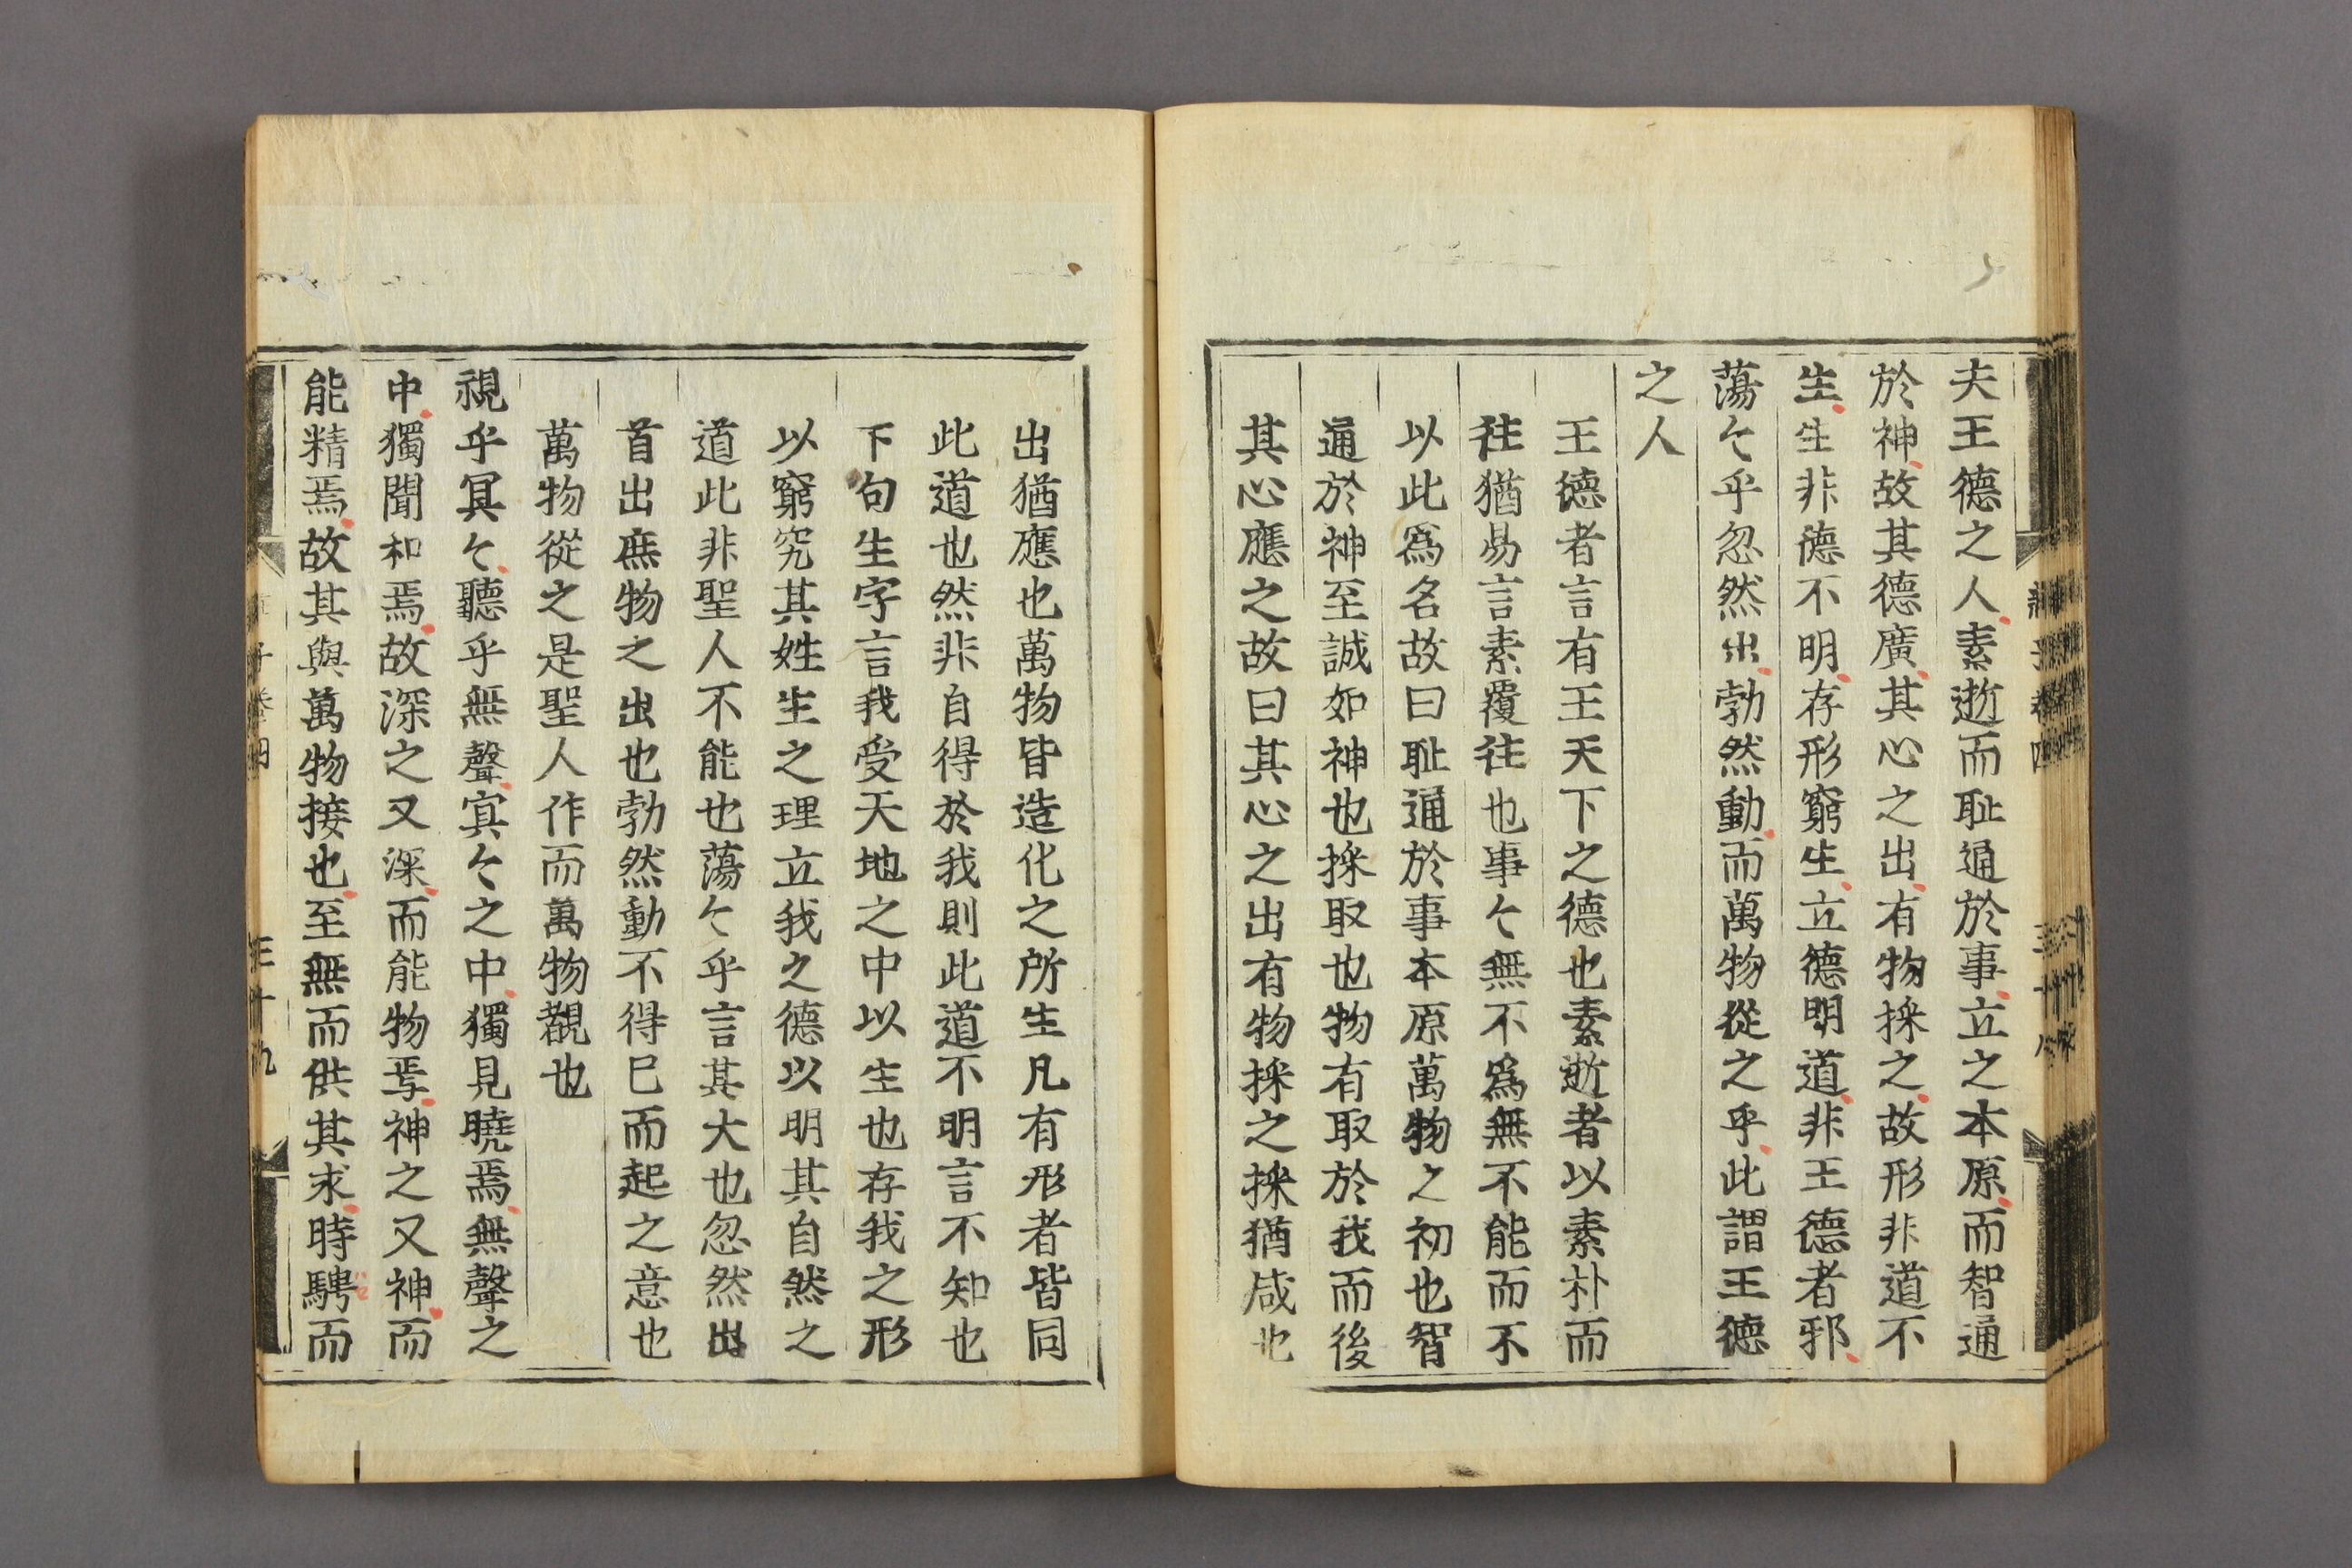 夫王德之人素逝而耻通於事立之本原而智通
於神故其德廣其心之出有物採之故形非道不
生生非德不明存形窮生立德明道非王德者邪
蕩〻乎忽然出勃然動而萬物從之乎此謂王德
之人
王德者言有王天下之德也素逝者以素朴而
往猶易言素覆往也事〻無不爲無不能而不
以此爲名故曰耻通於事本原萬物之初也智
通於神至誠如神也採取也物有取於我而後
其心應之故曰其心之出有物採之採猶感也
出猶應也萬物皆造化之所生凡有形者皆同
此道也然非自得於我則此道不明言不知也
下句生字言我受天地之中以生也存我之形
以窮究其姓生之理立我之德以明其自然之
道此非聖人不能也蕩〻乎言其大也忽然出
首出庶物之出也勃然動不得已而起之意也
萬物從之是聖人作而萬物覩也
視乎冥〻聽乎無聲冥〻之中獨見曉焉無聲之
中獨聞和焉故深之又深而能物焉神之又神而
能精焉故其與萬物接也至無而供其求時騁而
三十九